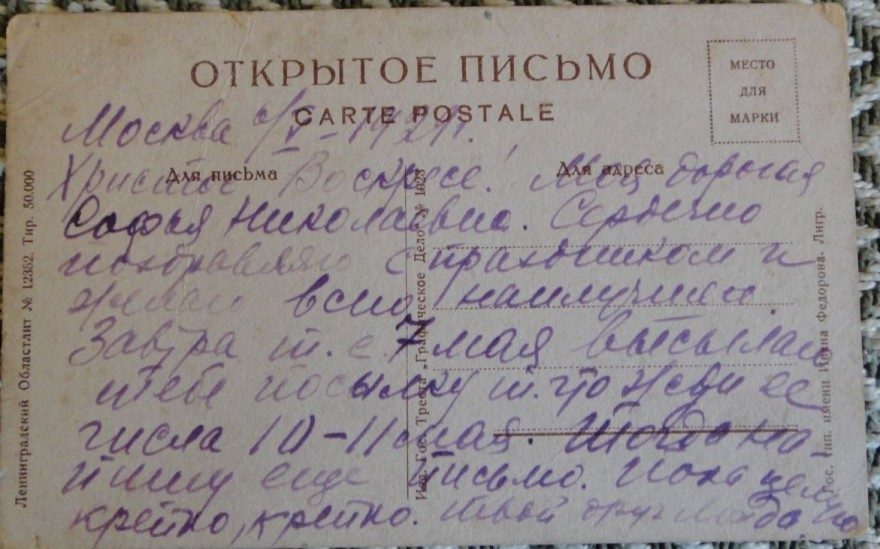 ОТКРЫТОЕ ПИСЬМО
CARTE POSTALE
МЕСТО
ДЛЯ
МАРКИ
Для письма
Для адреса
Москва 6/V-19
Христос Воскресе! Моя дорогая
Софья Николаевна. Сердечно
поздравляю с праздником и
желаю всего наилучшего
Завтра т.е 7 мая высылаю
тебе посылку т. что жди ее
числа 10-11 мая. Тогда на
пишу еще письмо. Пока целую
крепко, крепко. твой друг
Ленинградский Областлит № 12352. Тир. 50.000
Изд. Гос. Треста „Графическое Дело" № 1028
Гос. тип. имени Ивана Федорова. Лнгр.